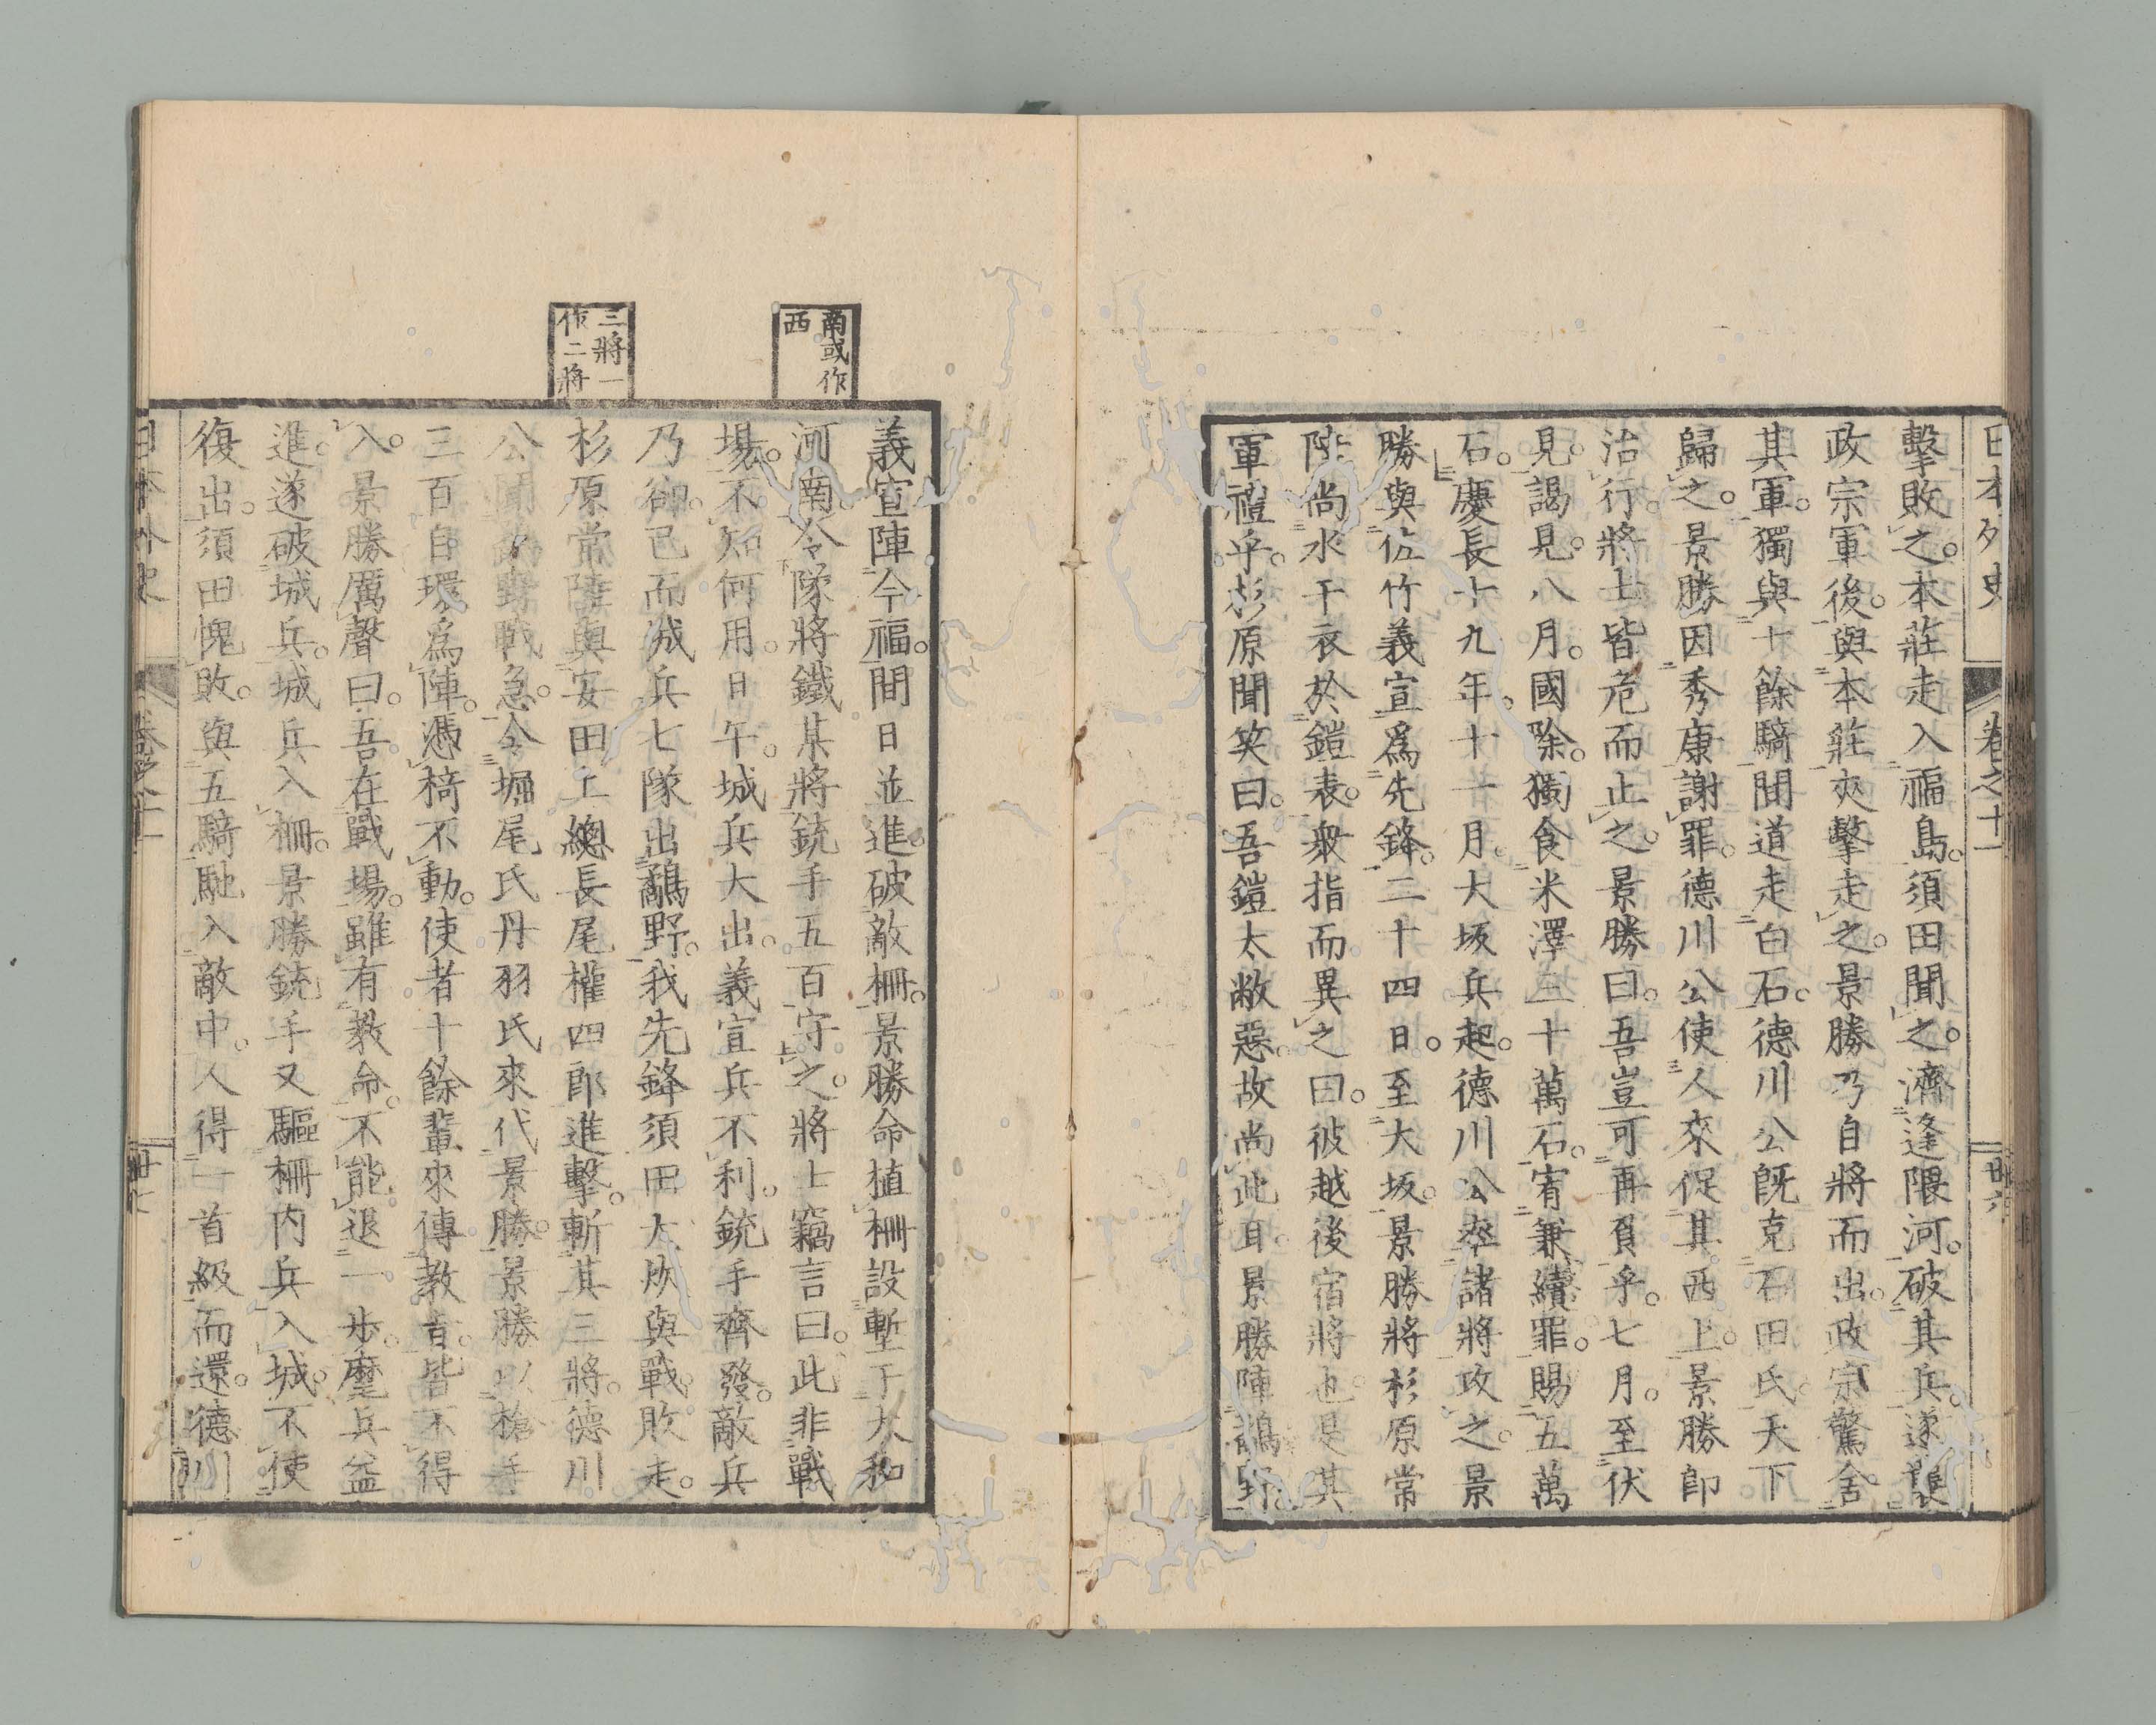 日本外史 卷之十一 廿六
擊敗之。本莊走入福島。須田聞之。濟逢隈河。破其兵。遂襲
政宗軍後。與本莊夾擊走之。景勝乃自將而出。政宗驚。舍
其軍。獨與十餘騎間道走白石。德川公既克石田氏。天下
歸之。景勝因秀康謝罪。德川公使人來促其西上。景勝即
治行。將士皆危而止之。景勝曰。吾豈可再負乎。七月。至伏
見。謁見。八月。國除。獨食米澤三十萬石。宥兼續罪。賜五萬
石。慶長十九年。十一月。大坂兵起。德川公率諸將攻之。景
勝與佐竹義宣爲先鋒。二十四日。至大坂。景勝將杉原常
陸尚水干衣於鎧表。衆指而異之曰。彼越後宿將也。是其
軍禮乎。杉原聞笑曰。吾鎧太敝惡。故尚此耳。景勝陣鴫野。
南或作
西
三將一
作二將
義宣陣今福。間日並進。破敵柵。景勝命植柵設塹于大和
河南。令隊將鐵某將銃手五百守之。將士竊言曰。此非戰
場。不知何用。日午。城兵大出。義宣兵不利。銃手齊發。敵兵
乃卻。已而城兵七隊出鴫野。我先鋒須田大炊與戰。敗走。
杉原常陸與安田上總長尾權四郎進擊。斬其三將。德川
公聞鴫野戰急。令堀尾氏丹羽氏來代景勝。景勝以槍手
三百自環爲陣。憑椅不動。使者十餘輩來傳教旨。皆不得
入。景勝厲聲曰。吾在戰場。雖有教命。不能退一步。麾兵益
進。遂破城兵。城兵入柵。景勝銃手又驅柵内兵入城。不使
復出。須田愧敗。與五騎馳入敵中。人得一首級而還。德川
日本外史 卷之十一 廿七